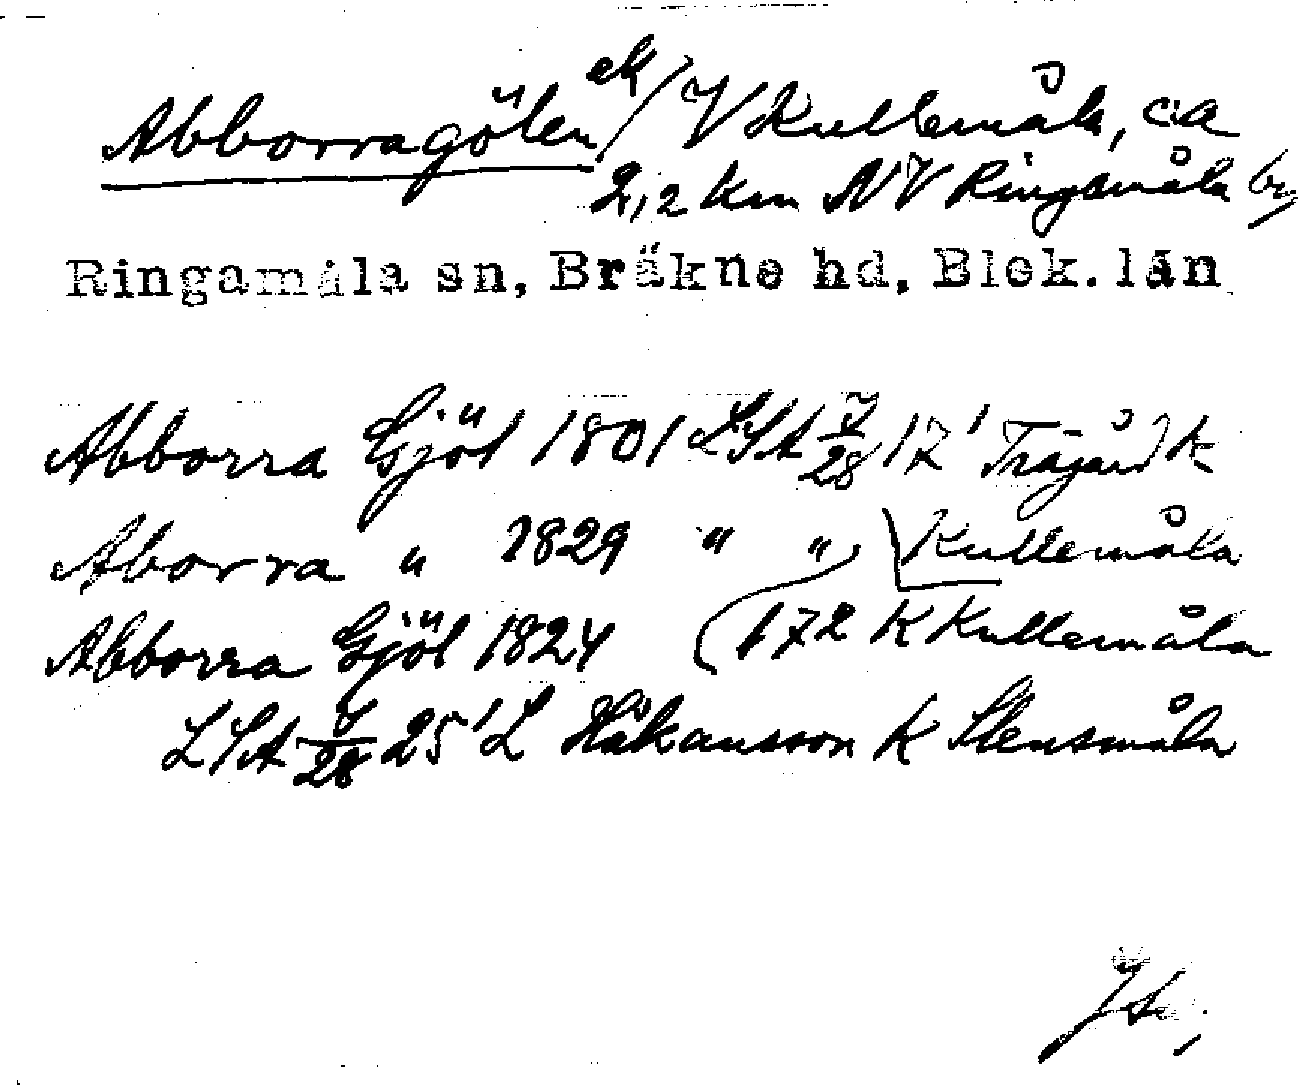 Abborragölen ek / V Kullemåla, c:a
2,2 km NV Ringamåla by
Ringamåla sn, Bräkne hd, Blek. län
Abborra Gjöl 1801 LSA 28 17' Trägård k
Aborra " 1829 " " Kullemåla
Abborra Gjöl 1824 172 K Kullemåla
LSA 28 25' L Håkansson K Stensmåla